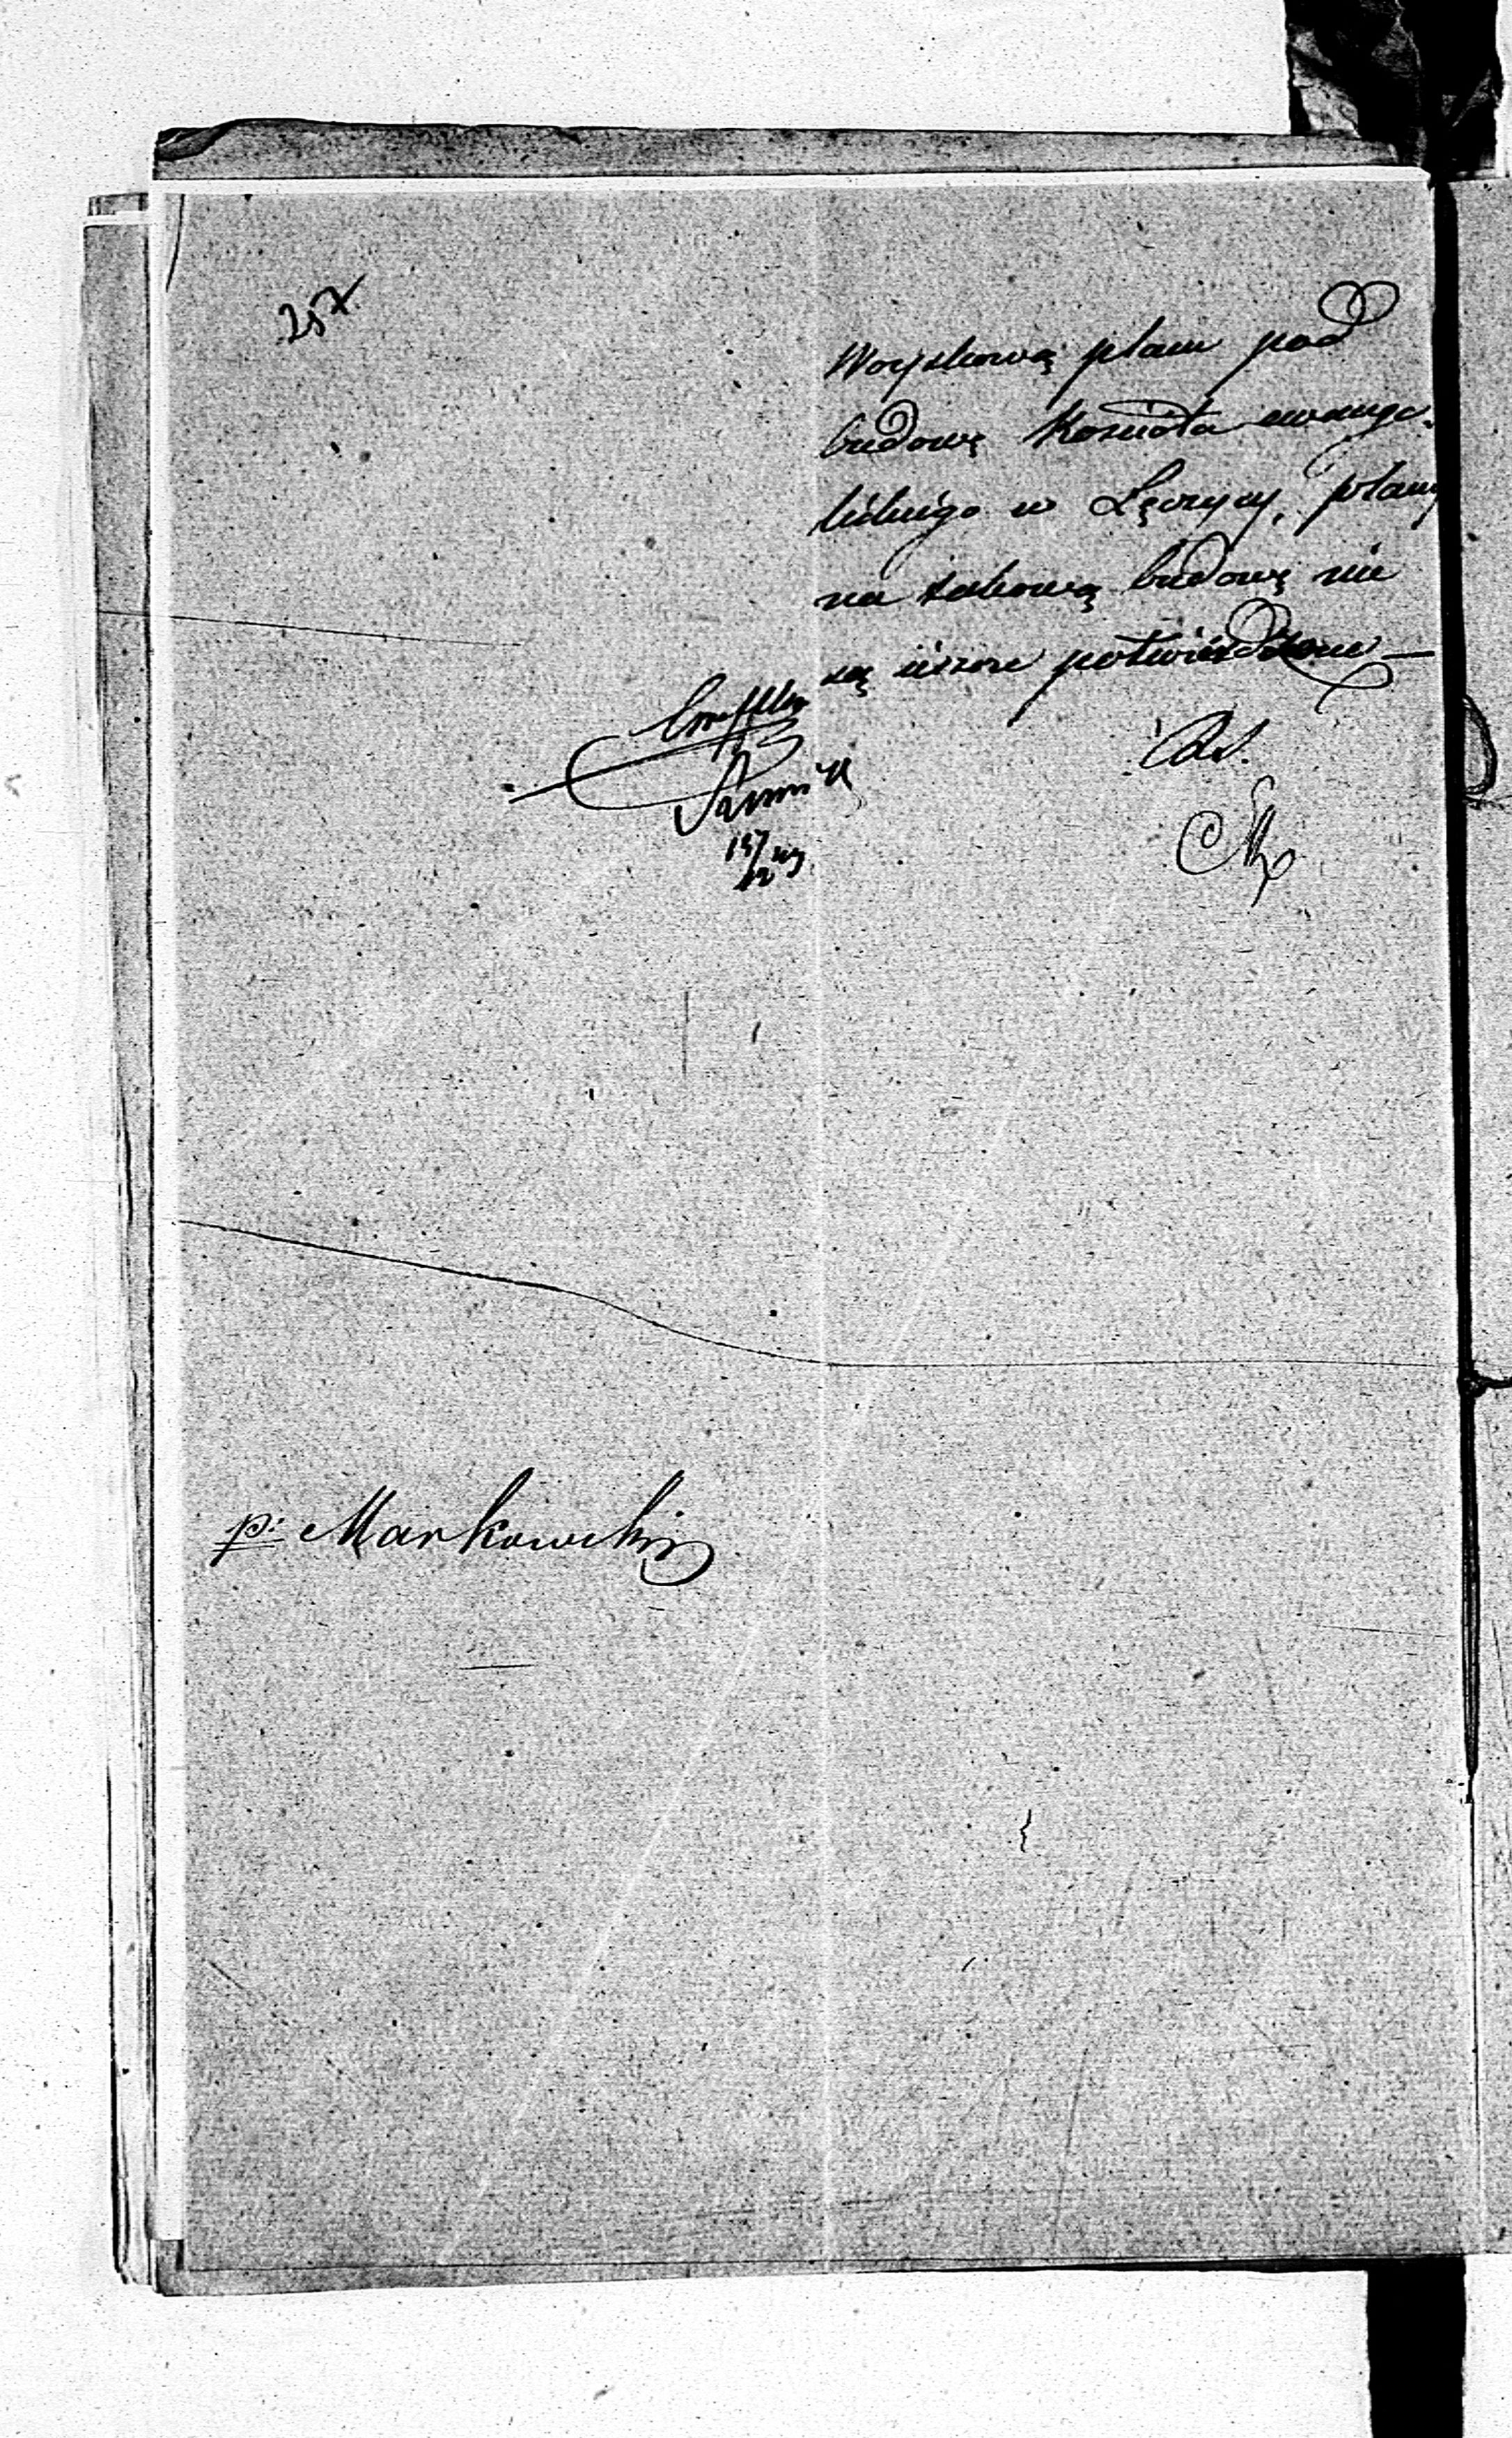 257.
Woyskową placu pod
budowę Kościoła ewange-
lickiego w Łęczycy, plany
na takową budowę nie
są ieszcze potwierdzone —
15/12 49
p. Markowski